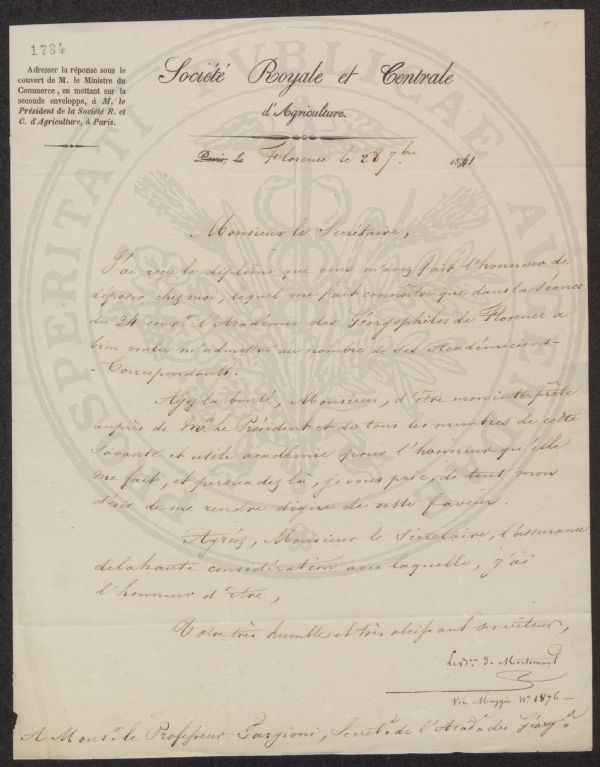 1784
Adresser la réponse sous le
couvert de M. le Ministre du
Commerce, en mettant sur la
seconde enveloppe, à M. le
Président de la Société R. et
C. d'Agriculture, à Paris.
Société Royale et Centrale
d'Agriculture.
Paris, le Florence le 28 7bre 1841
Monsieur le Secrétaire,
J'ai reçu le diplome que vous m'avez fait l'honneur de
déposer chez moi, lequel me fait connaître que dans la Séance
du 24 court. l'Académie des Géorgophiles de Florence a
bien voulu m'admettre au nombre de ses Académiciens-
-Correspondants.
Ayez la bonté, Monsieur, d'être mon interprète
auprès de Mr. le Président et de tous les membres de cette
Savante et utile académie pour l'honneur qu'elle
me fait, et persuadez la, je vous prie, de tout mon
désir de me rendre digne de cette faveur.
Agréez, Monsieur le Sécrétaire, l'assurance
de la haute considération avec laquelle, j'ai
l'honneur d'être,
Votre très humble et très obéissant serviteur,
de Mortemart
Via Maggio No. 1876 -
A Monsr. le Professeur Targioni, Secretre. de l'Acade. des Géorg
PROSPERITATI PUBLICAE AUGENDAE